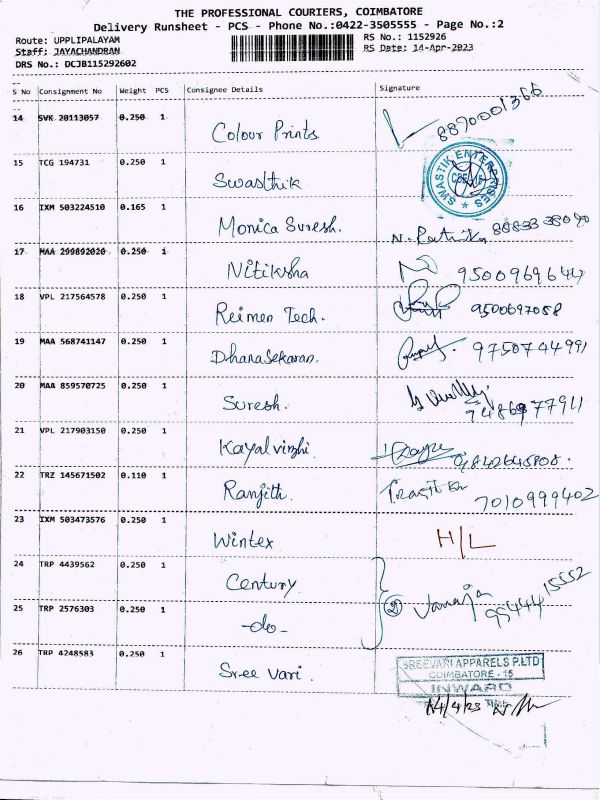 THE PROFESSIONAL COURIERS, COIMBATORE
Delivery Runsheet - PCS - Phone No.:0422-3505555 - Page No.:2
Route: UPPLIPALAYAM RS No.: 1152926
Staff: JAYACHANDRAN RS Date: 14-Apr-2023
DRS No.: DCJB115292602
S No Consignment No Weight PCS Consignee Details Signature
14 SVK 20113057 0.250 1 Colour Prints 8870001366
15 TCG 194731 0.250 1 Swasthik SWASTIK ENTERPRISES
16 IXM 503224510 0.165 1 Monica Suresh.
17 MAA 299892020 0.250 1 Nitiksha 9500969644
18 VPL 217564578 0.250 1 Reimen Tech. 9500697058
19 MAA 568741147 0.250 1 Dhanasekaran. 9750744991
20 MAA 859570725 0.250 1 Suresh.
21 VPL 217903150 0.250 1 Kayalvizhi
22 TRZ 145671502 0.110 1 Ranjith. 7010999402
23 IXM 503473576 0.250 1 Wintex H/L
24 TRP 4439562 0.250 1 Century
② Vanaja 9544415552
25 TRP 2576303 0.250 1 -do-
26 TRP 4248583 0.250 1 Sree Vari.
SREEVARI APPARELS P.LTD
COIMBATORE - 15
INWARD
14/4/23